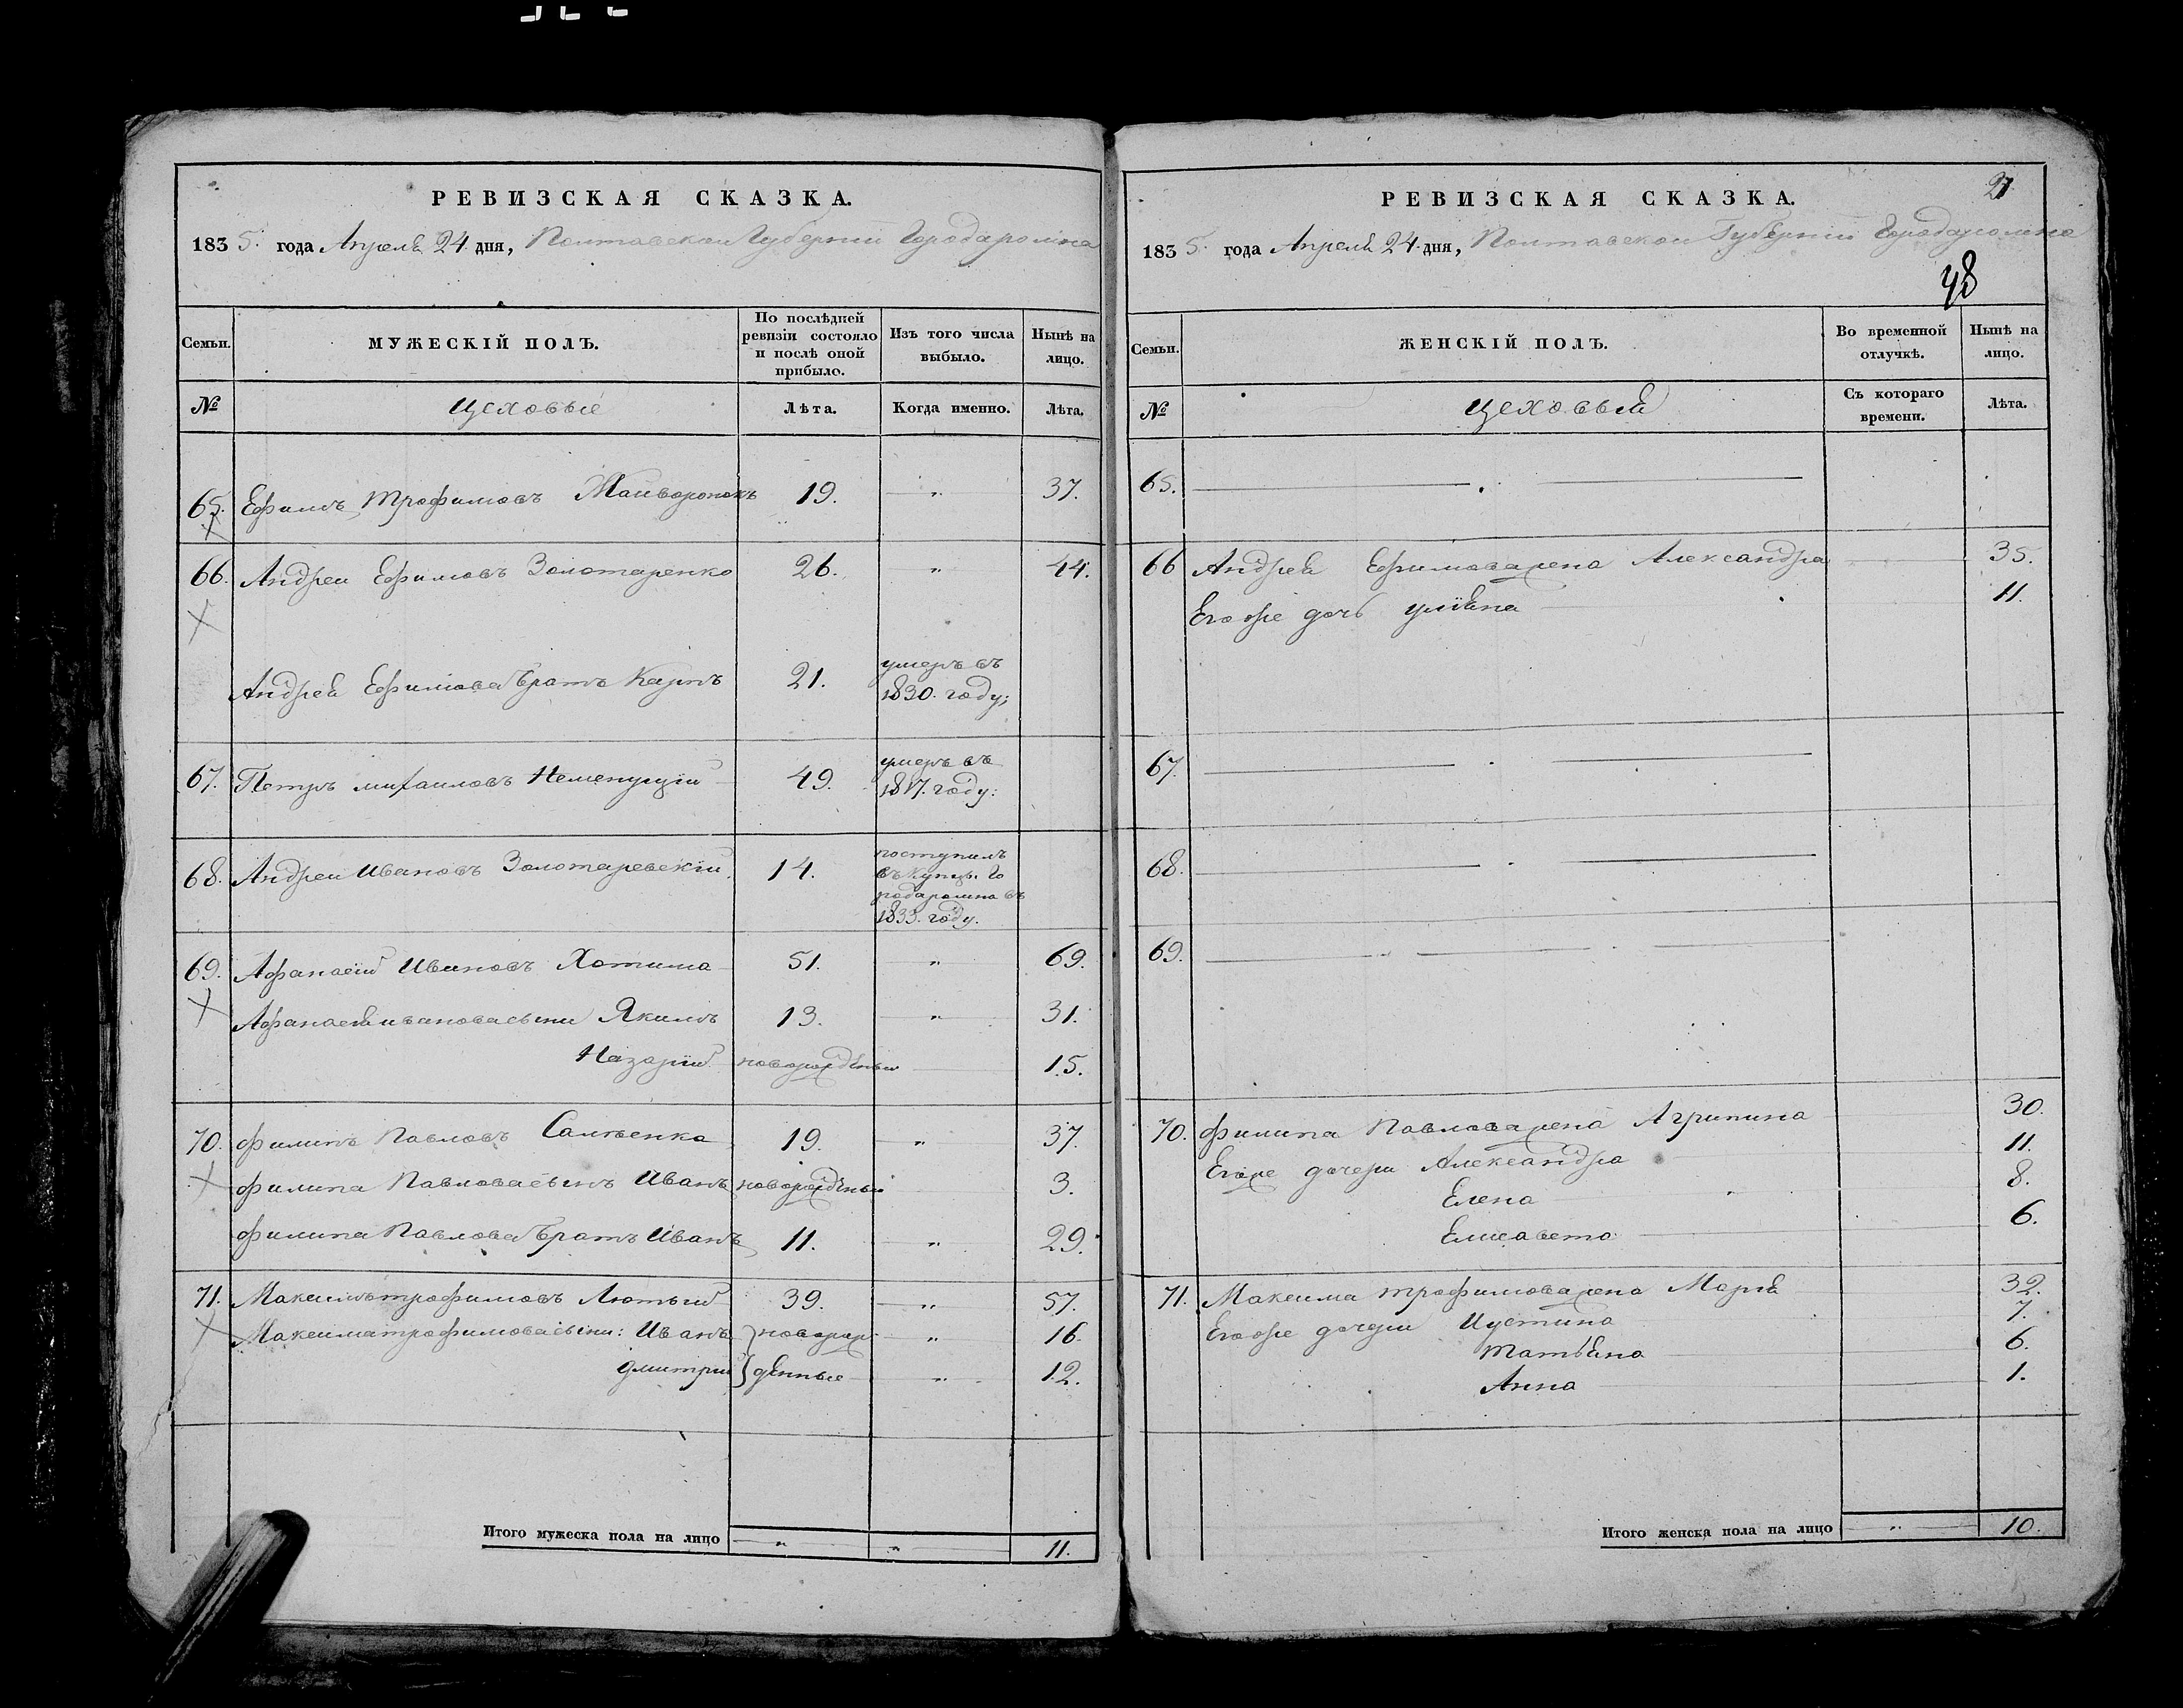 РЕВИЗСКАЯ СКАЗКА.
1835. года Апреля 24. дня, Полтавской Губернии Города Ромна
Семьи. МУЖЕСКІЙ ПОЛЪ. По послѣдней ревизіи состояло и послѣ оной прибыло. Изъ того числа выбыло. Нынѣ на лицо.
№ Цеховые Лѣта. Когда именно. Лѣта.
65. Ефимъ Трофимовъ 19. " 37.
66. Андреи Ефимовъ Золотаренко 26. " 44.
Андрея Ефимова братъ Карпъ 21. умеръ въ 1830. году;
67. Петръ михаиловъ 49. умеръ въ 1817. году:
68. Андреи Ивановъ Золотаревскій 14. поступилъ въ купц. Города ромна въ 1833. году.
69. Афанасій Ивановъ Хотина 51. " 69.
Афанасія иванова сыни Якимъ 13. " 31.
Назарій новорожденыи 15.
70. Филипъ Павловъ 19. " 37.
Филипа Павлова сынъ Иванъ новорожденыи 3.
Филипа Павлова братъ Иванъ 11. " 29.
71. Максимъ трофимовъ Лютый 39. " 57.
Максима трофимова сыни: Иванъ новорож- " 16.
дмитрій денные " 12.
Итого мужеска пола на лицо " " 11.
РЕВИЗСКАЯ СКАЗКА.
27
1835. года Апреля 24. дня, Полтавской Губерніи Города ромна
48
Семьи. ЖЕНСКІЙ ПОЛЪ. Во временной отлучкѣ. Нынѣ на лицо.
№ Цеховыя Съ котораго времени. Лѣта.
65.
66 Андрея Ефимова жена Александра 35.
Его же дочь улiяна 11.
67.
68.
69.
70. Филипа Павлова жена Агрипина 30.
Его же дочери Александра 11.
Елена " 8.
Елисавета 6.
71. Максима трофимова жена Марiя 32.
Его же дочери Иустина 7.
татьяна 6.
Анна 1.
Итого женска пола на лицо " 10.